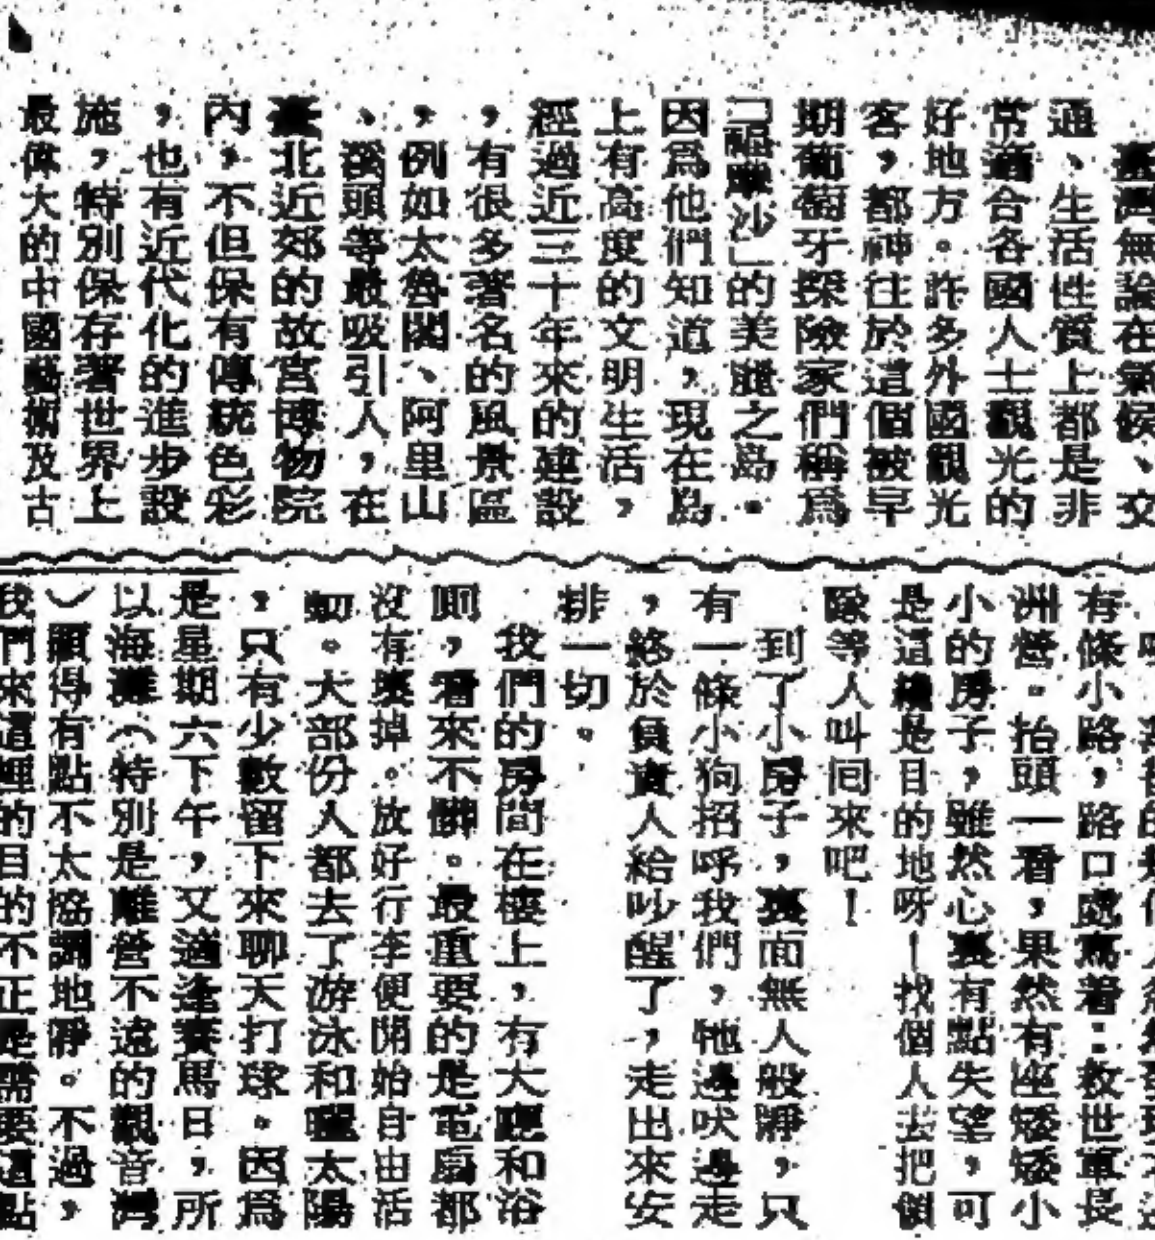 臺灣無論在氣候、交
通、生活性質上都是非
常適合各國人士觀光的
好地方。許多外國觀光
客，都神往於這個被早
期葡萄牙探險家們稱爲
「福摩沙」的美麗之島。
因爲他們知道，現在島
上有高度的文明生活，
經過近三十年來的建設
，有很多著名的風景區
，例如太魯閣、阿里山
、溪頭等最吸引人，在
臺北近郊的故宮博物院
內，不但保有傳統色彩
，也有近代化的進步設
施，特別保存著世界上
最偉大的中國藝術及古
有條小路，路口處寫着：救世軍長
洲營。抬頭一看，果然有座矮矮小
小的房子，雖然心裏有點失望，可
是這機是目的地呀！找個人去把領
隊等人叫回來吧！
到了小房子，裏面無人般靜，只
有一條小狗招呼我們，牠邊吠邊走
，終於負責人給吵醒了，走出來安
排一切。
我們的房間在樓上，有大廳和浴
厠，看來不髒。最重要的是電扇都
沒有壞掉。放好行李便開始自由活
動。大部份人都去了游泳和曬太陽
，只有少數留下來聊天打球。因爲
是星期六下午，又適逢賽馬日，所
以海灘（特別是離營不遠的觀音灣
）顯得有點不太協調地靜。不過，
我們來這裡的目的不正是需要這點